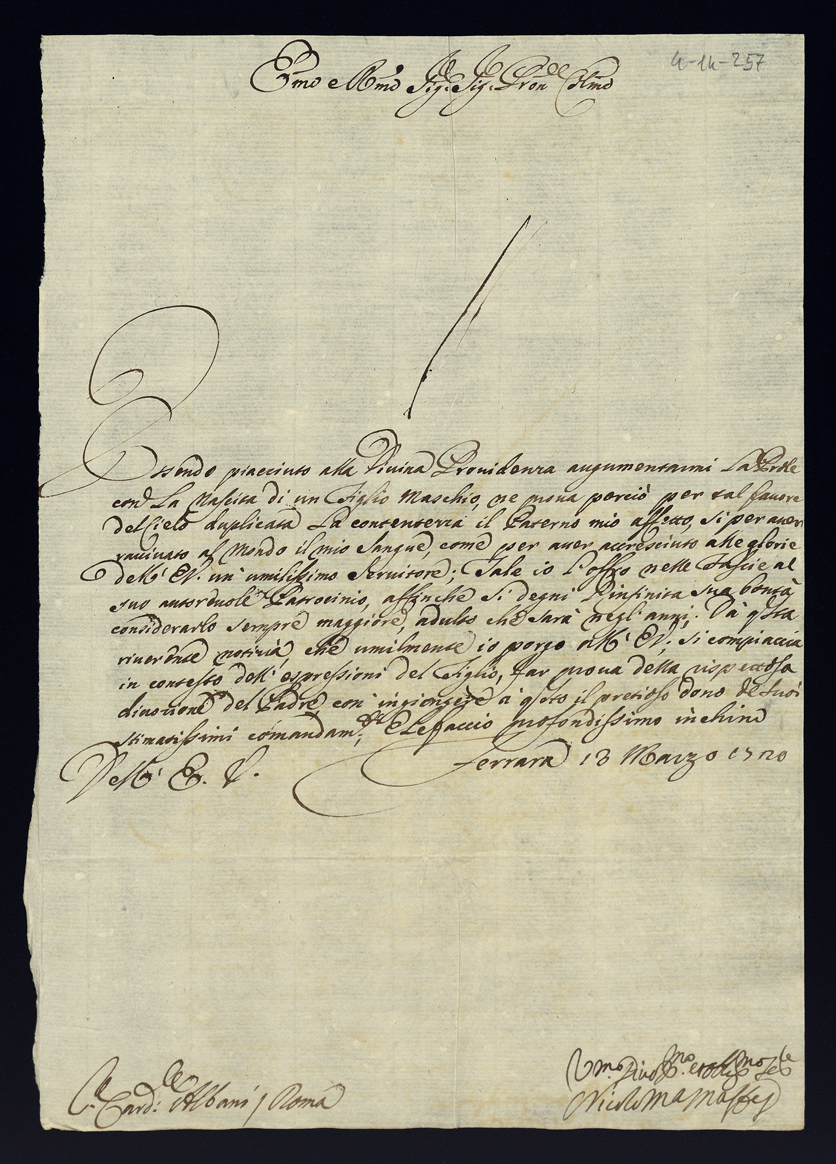 4-14-257
Em̃o e Rm̃o Sig.re Sig.re Prõn Colm̃o
Essendo piacciuto alla Divina Providenza augumentarmi La Prole
con La Nascita di un Figlio Maschio, ne prova perciò per tal favore
del Cielo duplicata La contentezza il Paterno mio affetto, si per aver
ravivato al Mondo il mio Sangue, come per aver accresciuto alle glorie
dell' E.V. un' umilissimo Servitore; Tale io l'offro nelle Fascie al
suo autorevole Patrocinio, affinche si degni l'infinita sua bontà
considerarlo sempre maggiore, adulto che sarà negl'anni. Da q'sta
riverente notizia che umilmente io porgo all' E.V., si compiaccia
in contesto dell'espressioni del Figlio, far prova della rispettosa
divozione del Padre, con ingiongere à q'sto il pretioso dono de suoi
stimatissimi comandam.ti E Le faccio profondissimo inchino
Dell' E. V.
Ferrara 13 Marzo 1720
Card.le Albani / Roma
Um̃o
Nicolo Ma Maffei